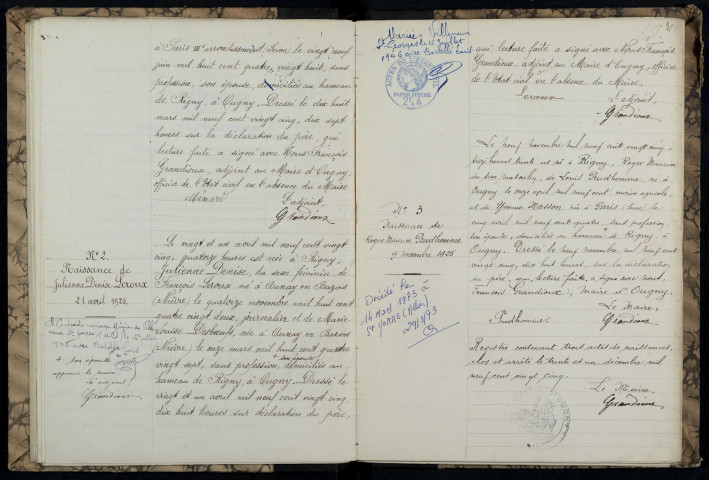 à Paris IIIe arrondissement (Seine) le vingt neuf
juin mil huit cent quatre vingt huit, sans
profession, son épouse, domiciliés au hameau
de Prigny, à Ougny. Dressé le dix huit
mars mil neuf cent vingt cinq, dix sept
heures sur la déclaration du père, qui
lecture faite, a signé avec Nous François
Grandioux, adjoint au Maire d'Ougny,
officier de l'Etat civil en l'absence du Maire
Ménard L'adjoint,
Grandioux
N° 2.
Naissance de
Julienne Denise Leroux
21 avril 1925.
+ son épouse
approuvé le renvoi
L'adjoint
Grandioux
Le vingt et un avril mil neuf cent vingt
cinq, quatorze heures est née à Prigny
Julienne Denise, du sexe féminin, de
François Leroux né à Aunay en Bazois
(Nièvre) le quatorze novembre mil huit cent
quatre vingt deux, journalier et de Marie
Louise Desbœufs, née à Aunay en Bazois
(Nièvre) le onze mars mil huit cent quatre
+ son épouse
vingt sept, sans profession, domiciliés au
hameau de Prigny, à Ougny. Dressé le
vingt et un avril mil neuf cent vingt cinq,
dix huit heures sur déclaration du père,
Mariée à Villeneuve
St Georges le juillet
1946 avec
ACTES DE L'ETAT CIVIL
PAPIER SPECIAL
31
qui, lecture faite a signé avec Nous François
Grandioux, adjoint au Maire d'Ougny, officier
de l'Etat civil en l'absence du Maire.
Leroux L'adjoint,
Grandioux
N° 3
Naissance de
Roger Maurice Prudhomme
9 novembre 1925
Décédé le
14 Mars 1973 à
St YORRE (Allier)
Le neuf novembre mil neuf cent vingt cinq
heures trente est né à Prigny, Roger Maurice
du sexe masculin, de Louis Prudhomme, né à
Ougny le onze avril mil neuf cent, ouvrier agricole,
et de Yvonne Masson née à Paris (Seine) le
cinq avril mil neuf cent quatre sans profession,
son épouse, domiciliés au hameau de Prigny à
Ougny. Dressé le neuf novembre mil neuf cent
vingt cinq, dix huit heures, sur la déclaration
du père, qui, lecture faite, a signé avec nous,
François Grandioux, Maire d'Ougny.
Le Maire,
Prudhomme Grandioux
Registre contenant trois actes de naissances,
clos et arrêté le trente et un décembre mil
neuf cent vingt cinq.
Le Maire
Grandioux